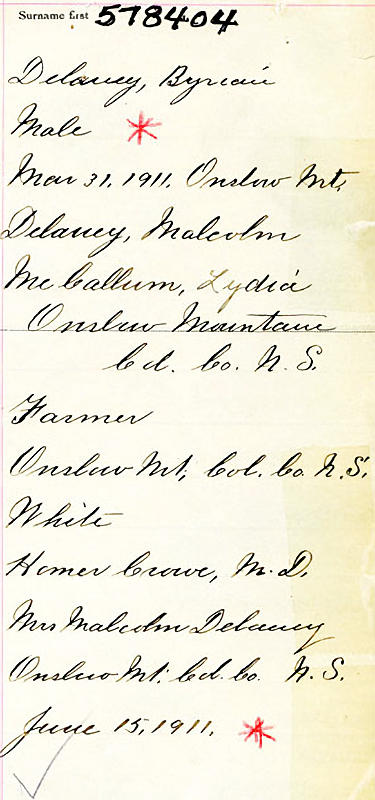 Surname first 578404
Delaney, Byrian
Male
Mar 31, 1911. Onslow Mt,
Delaney, Malcolm
Mc Callum, Lydia
Onslow Mountain
Col. Co. N. S.
Farmer
Onslow Mt, Col. Co. N. S.
White
Homer Crowe, M. D.
Mrs Malcolm Delaney
Onslow Mt. Col. Co. N. S.
June 15, 1911.